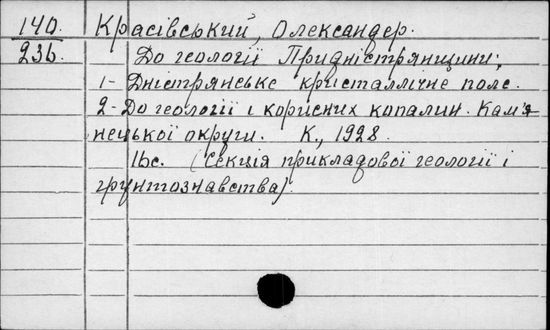 140. Красівський, Олександер.
236. До геології Придністрянщини;
1- Дністрянське кристаллічне поле.
2- До геології і корисних копалин. Кам'я
нецької округи. К., 1928.
16с. (Секція прикладової геології і
грунтознавства).